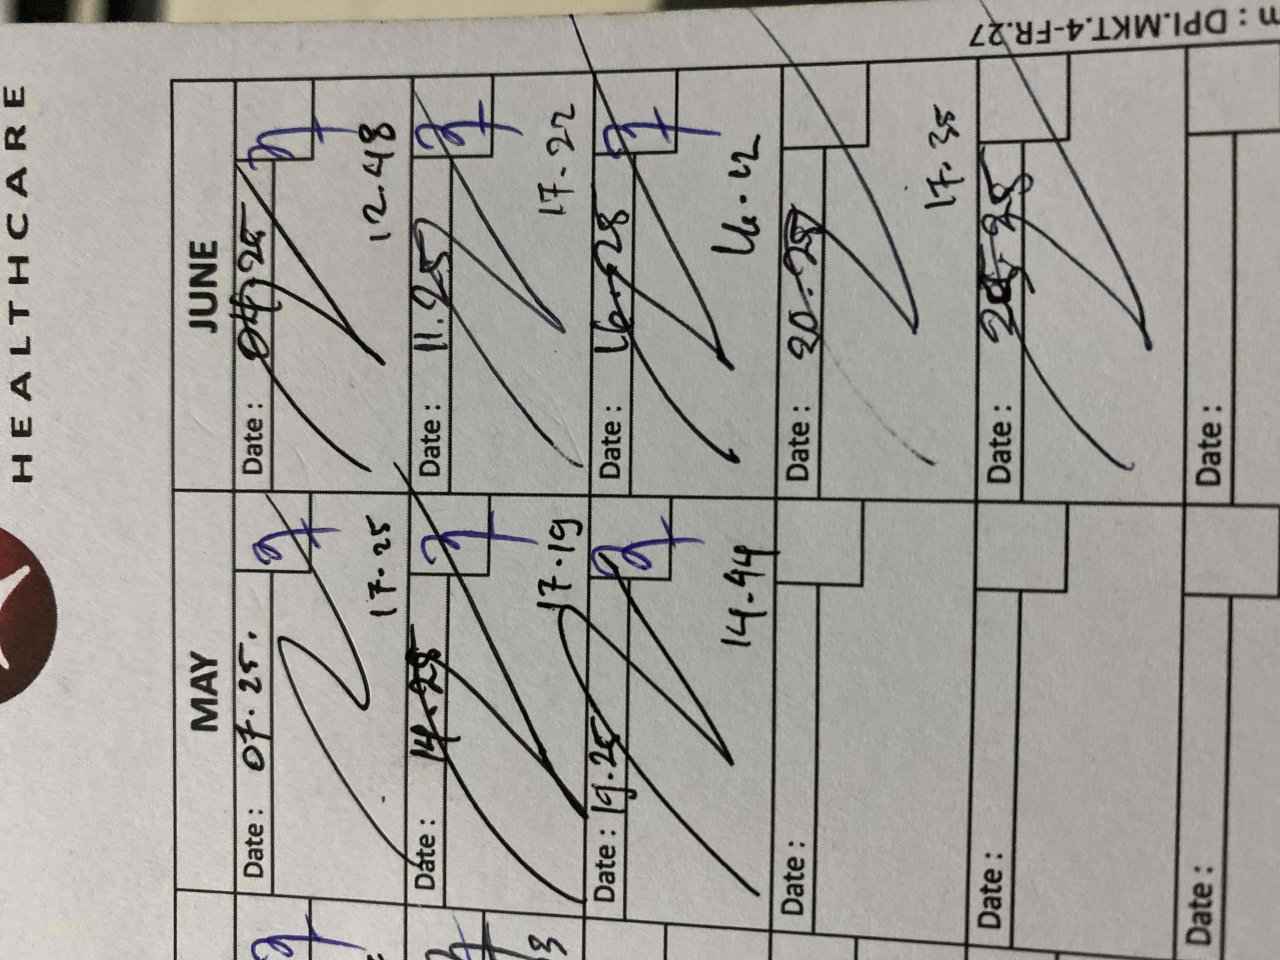 HEALTHCARE
MAY
Date : 07.25.
17.25
Date : 14.25
17.19
Date : 19.25
14.44
Date :
Date :
Date :
JUNE
Date : 04.25
12.48
Date : 11.25
17.22
Date : 16.25
16.22
Date : 20.25
17.35
Date :
Date :
: DPI.MKT.4-FR.27